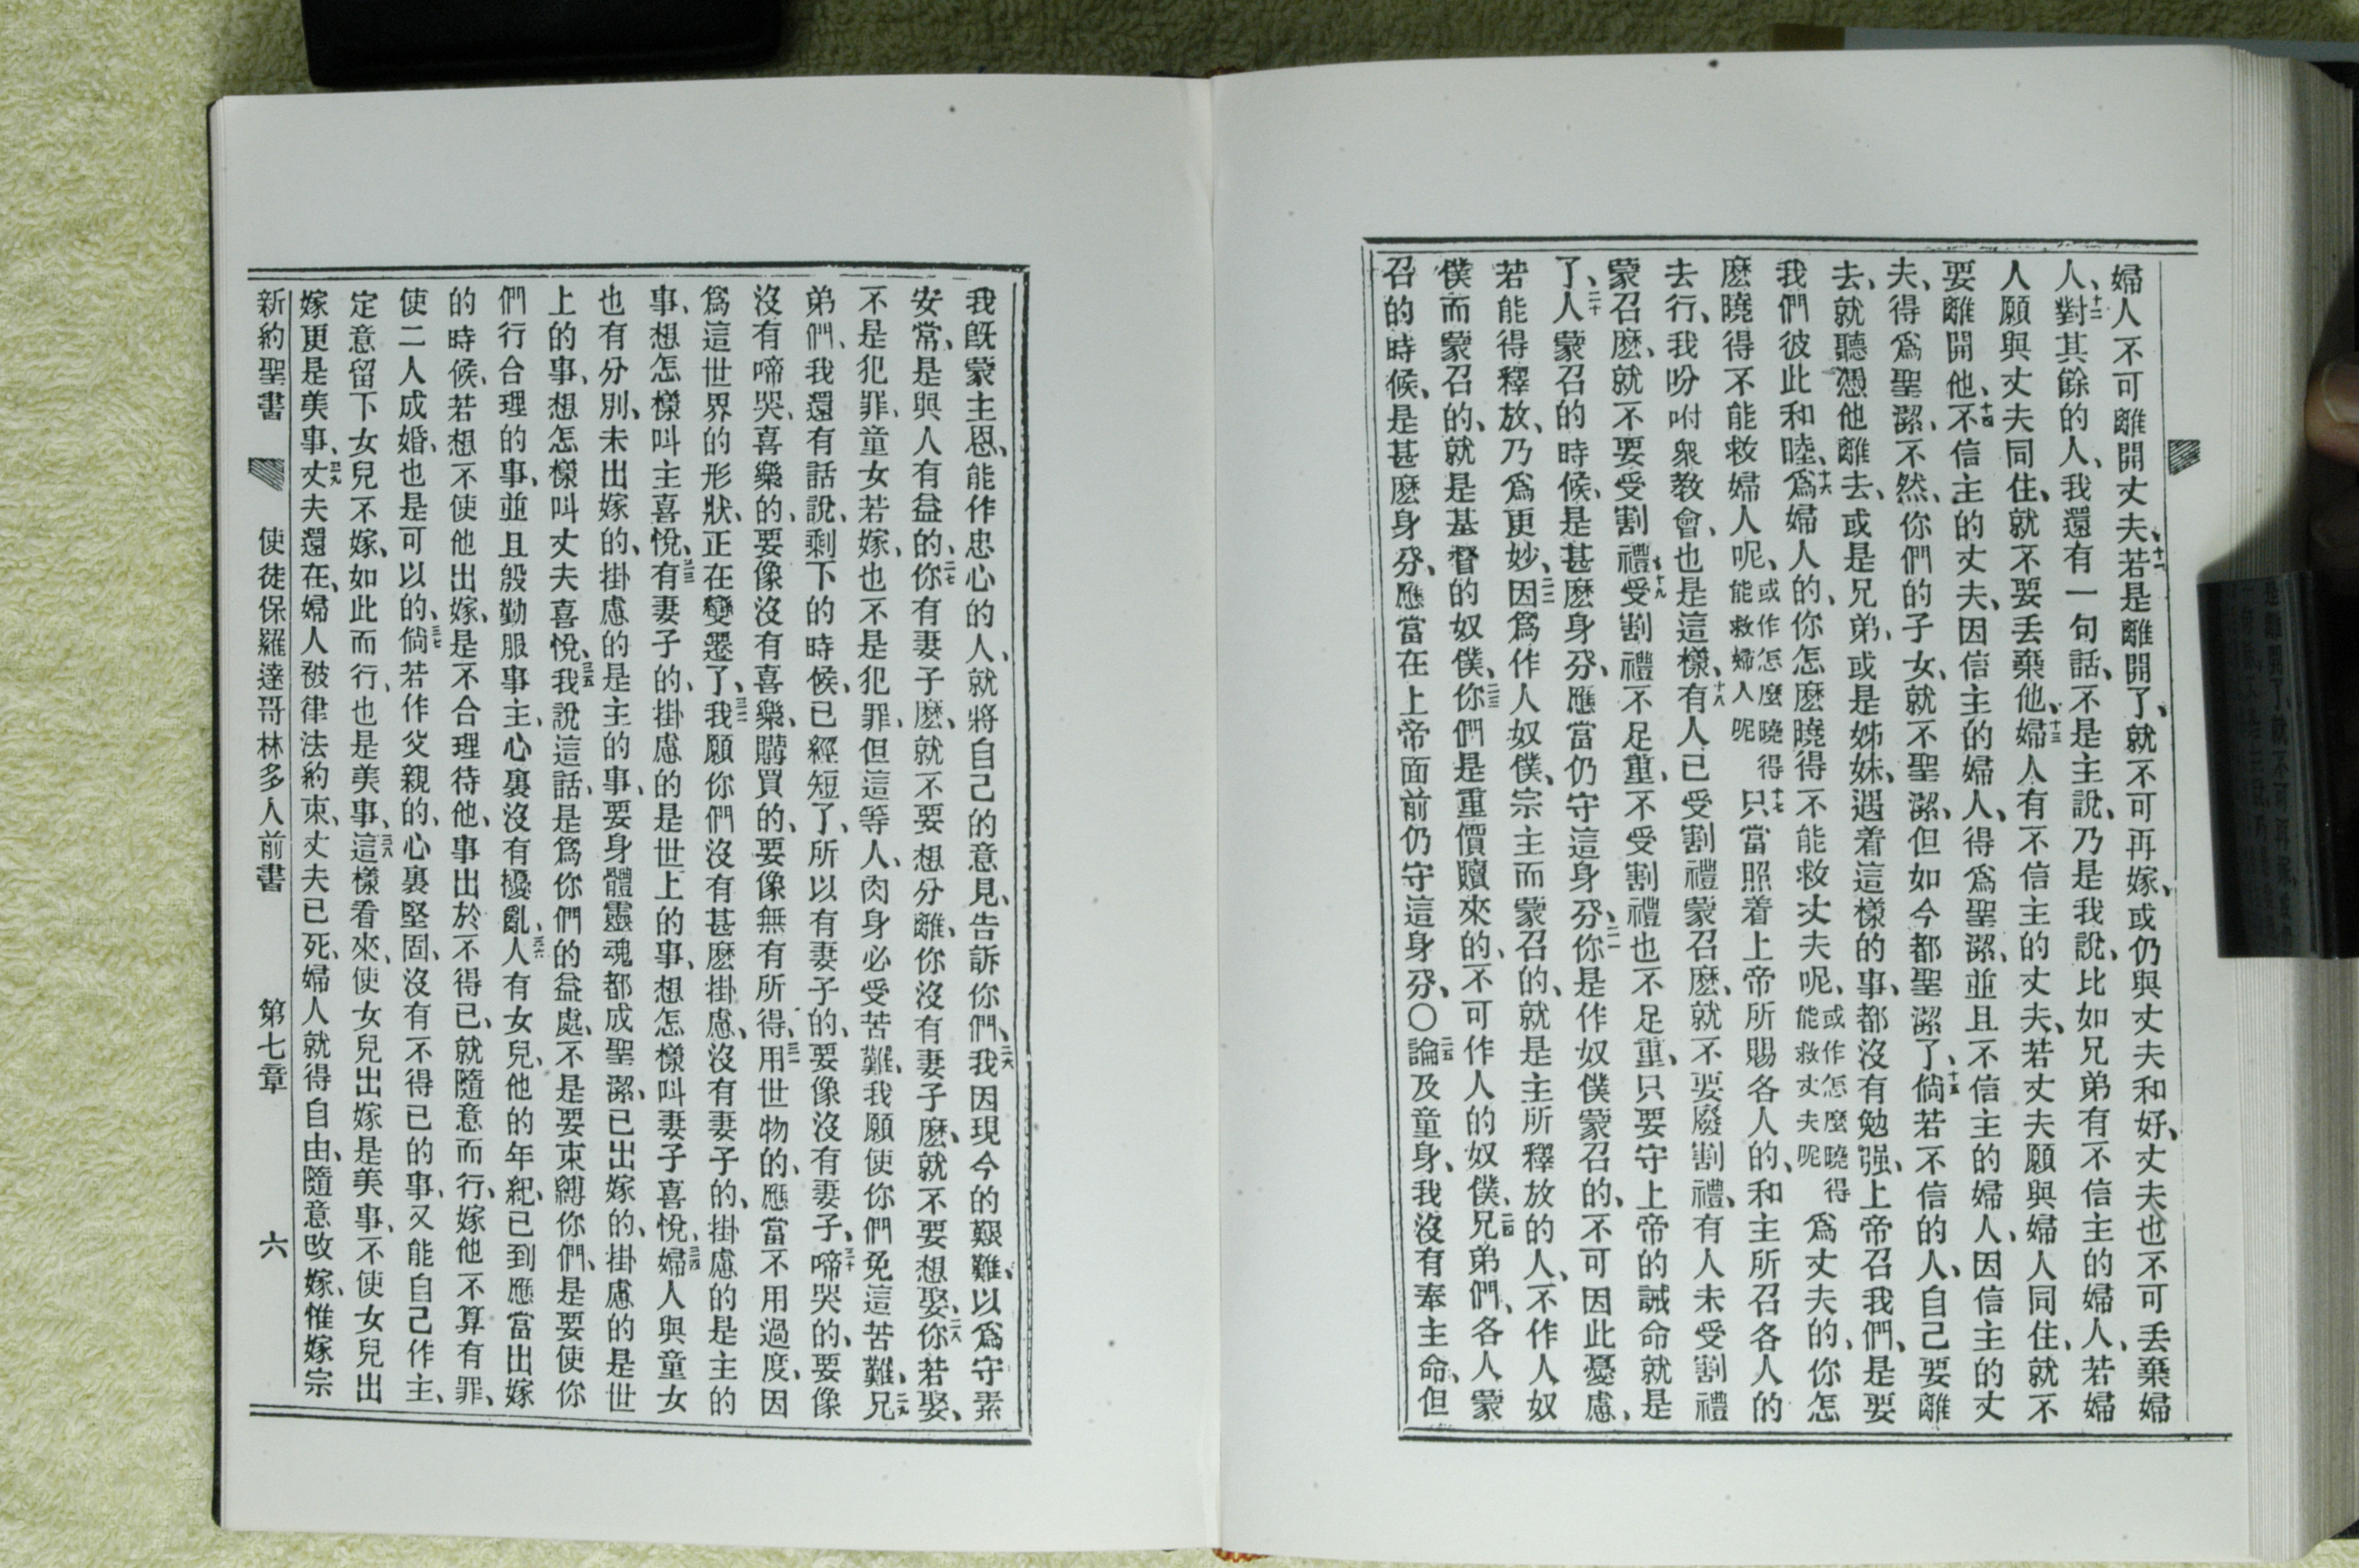 婦人不可離開丈夫、十一若是離開了、就不可再嫁、或仍與丈夫和好、丈夫也不可丟棄婦
人、十二對其餘的人、我還有一句話、不是主說、乃是我說、比如兄弟有不信主的婦人、若婦
人願與丈夫同住、就不要丟棄他、十三婦人有不信主的丈夫、若丈夫願與婦人同住、就不
要離開他、十四不信主的丈夫、因信主的婦人、得爲聖潔、並且不信主的婦人、因信主的丈
夫、得爲聖潔、不然、你們的子女、就不聖潔、但如今都聖潔了、十五倘若不信的人、自己要離
去、就聽憑他離去、或是兄弟、或是姊妹、遇着這樣的事、都沒有勉强、上帝召我們、是要
我們彼此和睦、十六爲婦人的、你怎麽曉得不能救丈夫呢、或作怎麼曉得能救丈夫呢爲丈夫的、你怎
麽曉得不能救婦人呢、或作怎麼曉得能救婦人呢十七只當照着上帝所賜各人的、和主所召各人的
去行、我吩咐衆教會、也是這樣、十八有人已受割禮蒙召麽、就不要廢割禮、有人未受割禮
蒙召麽、就不要受割禮、十九受割禮不足重、不受割禮也不足重、只要守上帝的誡命就是
了、二十人蒙召的時候、是甚麽身分、應當仍守這身分、二一你是作奴僕蒙召的、不可因此憂慮、
若能得釋放、乃爲更妙、二二因爲作人奴僕、宗主而蒙召的、就是主所釋放的人、不作人奴
僕而蒙召的、就是基督的奴僕、二三你們是重價贖來的、不可作人的奴僕、二四兄弟們、各人蒙
召的時候、是甚麽身分、應當在上帝面前仍守這身分、○二五論及童身、我沒有奉主命、但
我既蒙主恩、能作忠心的人、就將自己的意見、告訴你們、二六我因現今的艱難、以爲守素
安常、是與人有益的、二七你有妻子麽、就不要想分離、你沒有妻子麽、就不要想娶、二八你若娶、
不是犯罪、童女若嫁、也不是犯罪、但這等人、肉身必受苦難、我願使你們免這苦難、二九兄
弟們、我還有話說、剩下的時候、已經短了、所以有妻子的、要像沒有妻子、三十啼哭的、要像
沒有啼哭、喜樂的、要像沒有喜樂、購買的、要像無有所得、三一用世物的、應當不用過度、因
爲這世界的形狀、正在變遷了、三二我願你們沒有甚麽掛慮、沒有妻子的、掛慮的是主的
事、想怎樣叫主喜悅、三三有妻子的、掛慮的是世上的事、想怎樣叫妻子喜悅、三四婦人與童女
也有分別、未出嫁的、掛慮的是主的事、要身體靈魂都成聖潔、已出嫁的、掛慮的是世
上的事、想怎樣叫丈夫喜悅、三五我說這話、是爲你們的益處、不是要束縛你們、是要使你
們行合理的事、並且殷勤服事主、心裏沒有擾亂、三六人有女兒、他的年紀、已到應當出嫁
的時候、若想不使他出嫁、是不合理待他、事出於不得已、就隨意而行、嫁他不算有罪、
使二人成婚、也是可以的、三七倘若作父親的、心裏堅固、沒有不得已的事、又能自己作主、
定意留下女兒不嫁、如此而行、也是美事、三八這樣看來、使女兒出嫁是美事、不使女兒出
嫁更是美事、三九丈夫還在、婦人被律法約束、丈夫已死、婦人就得自由、隨意改嫁、惟嫁宗
新約聖書 使徒保羅達哥林多人前書 第七章 六